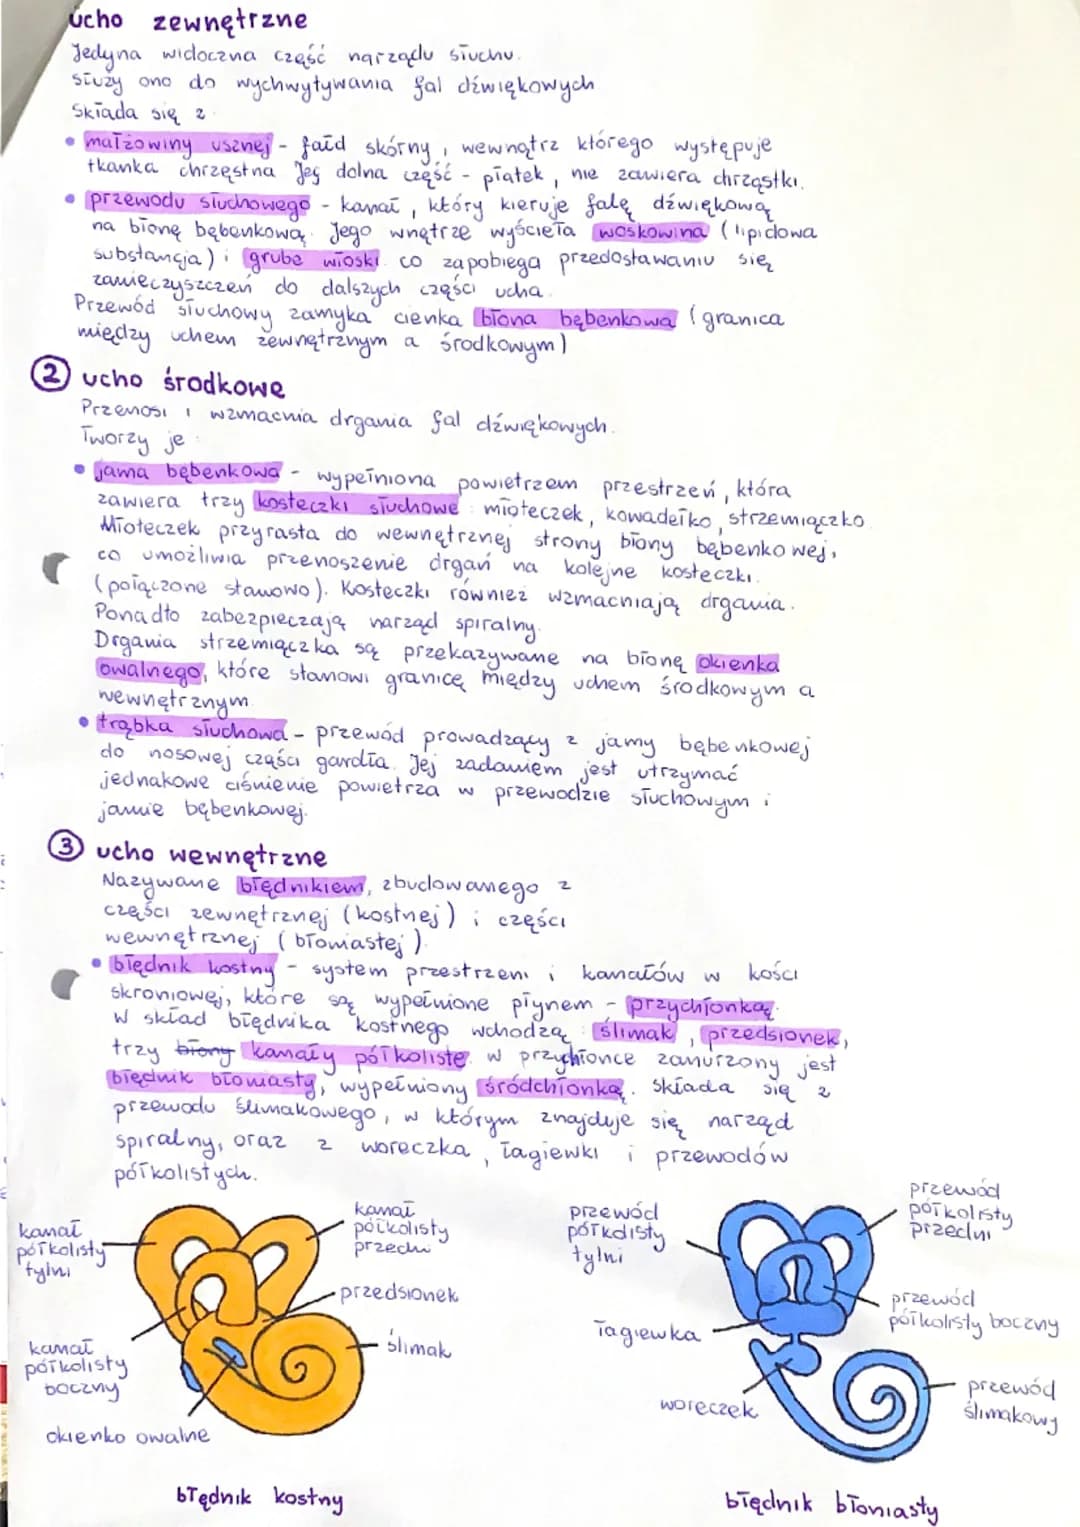 ucho zewnętrzne
Jedyna widoczna część narządu słuchu.
służy ono do wychwytywania fal dźwiękowych
Składa się z
• małżowiny usznej - fałd skórny, wewnątrz którego występuje
tkanka chrzęstna Jej dolna część - płatek, nie zawiera chrząstki.
• przewodu słuchowego - kanał, który kieruje falę dźwiękową
na błonę bębenkową. Jego wnętrze wyścieła woskowina (lipidowa
substancja) i grube włoski co zapobiega przedostawaniu się
zanieczyszczeń do dalszych części ucha.
Przewód słuchowy zamyka cienka błona bębenkowa (granica
między uchem zewnętrznym a środkowym)
2 ucho środkowe
Przenosi i wzmacnia drgania fal dźwiękowych.
Tworzy je:
• jama bębenkowa - wypełniona powietrzem przestrzeń, która
zawiera trzy kosteczki słuchowe: młoteczek, kowadełko, strzemiączko.
Młoteczek przyrasta do wewnętrznej strony błony bębenkowej,
co umożliwia przenoszenie drgań na kolejne kosteczki.
(połączone stawowo). Kosteczki również wzmacniają drgania.
Ponadto zabezpieczają narząd spiralny.
Drgania strzemiączka są przekazywane na błonę okienka
owalnego, które stanowi granicę między uchem środkowym a
wewnętrznym.
• trąbka słuchowa - przewód prowadzący z jamy bębenkowej
do nosowej części gardła. Jej zadaniem jest utrzymać
jednakowe ciśnienie powietrza w przewodzie słuchowym i
jamie bębenkowej.
3 ucho wewnętrzne
Nazywane błędnikiem, zbudowanego z
części zewnętrznej (kostnej) i części
wewnętrznej (błoniastej).
• błędnik kostny - system przestrzeni i kanałów w kości
skroniowej, które są wypełnione płynem - przychłonką.
W skład błędnika kostnego wchodzą: ślimak, przedsionek,
trzy błony kanały półkoliste. w przychłonce zanurzony jest
błędnik błoniasty, wypełniony śródchłonką. Składa się z
przewodu ślimakowego, w którym znajduje się narząd
spiralny, oraz z woreczka, łagiewki i przewodów
półkolistych.
kanał
półkolisty
tylni
kanał
półkolisty
przedni
przedsionek
ślimak
kanał
półkolisty
boczny
okienko owalne
błędnik kostny
przewód
półkolisty
tylni
przewód
półkolisty
przedni
przewód
półkolisty boczny
łagiewka
woreczek
przewód
ślimakowy
błędnik błoniasty